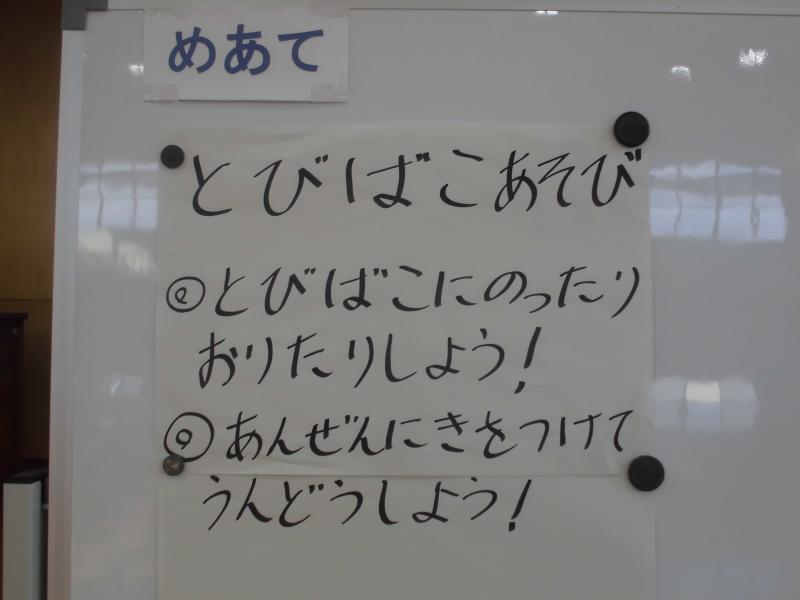 めあて
とびばこあそび
◎とびばこにのったり
おりたりしよう!
◎あんぜんにきをつけて
うんどうしよう!